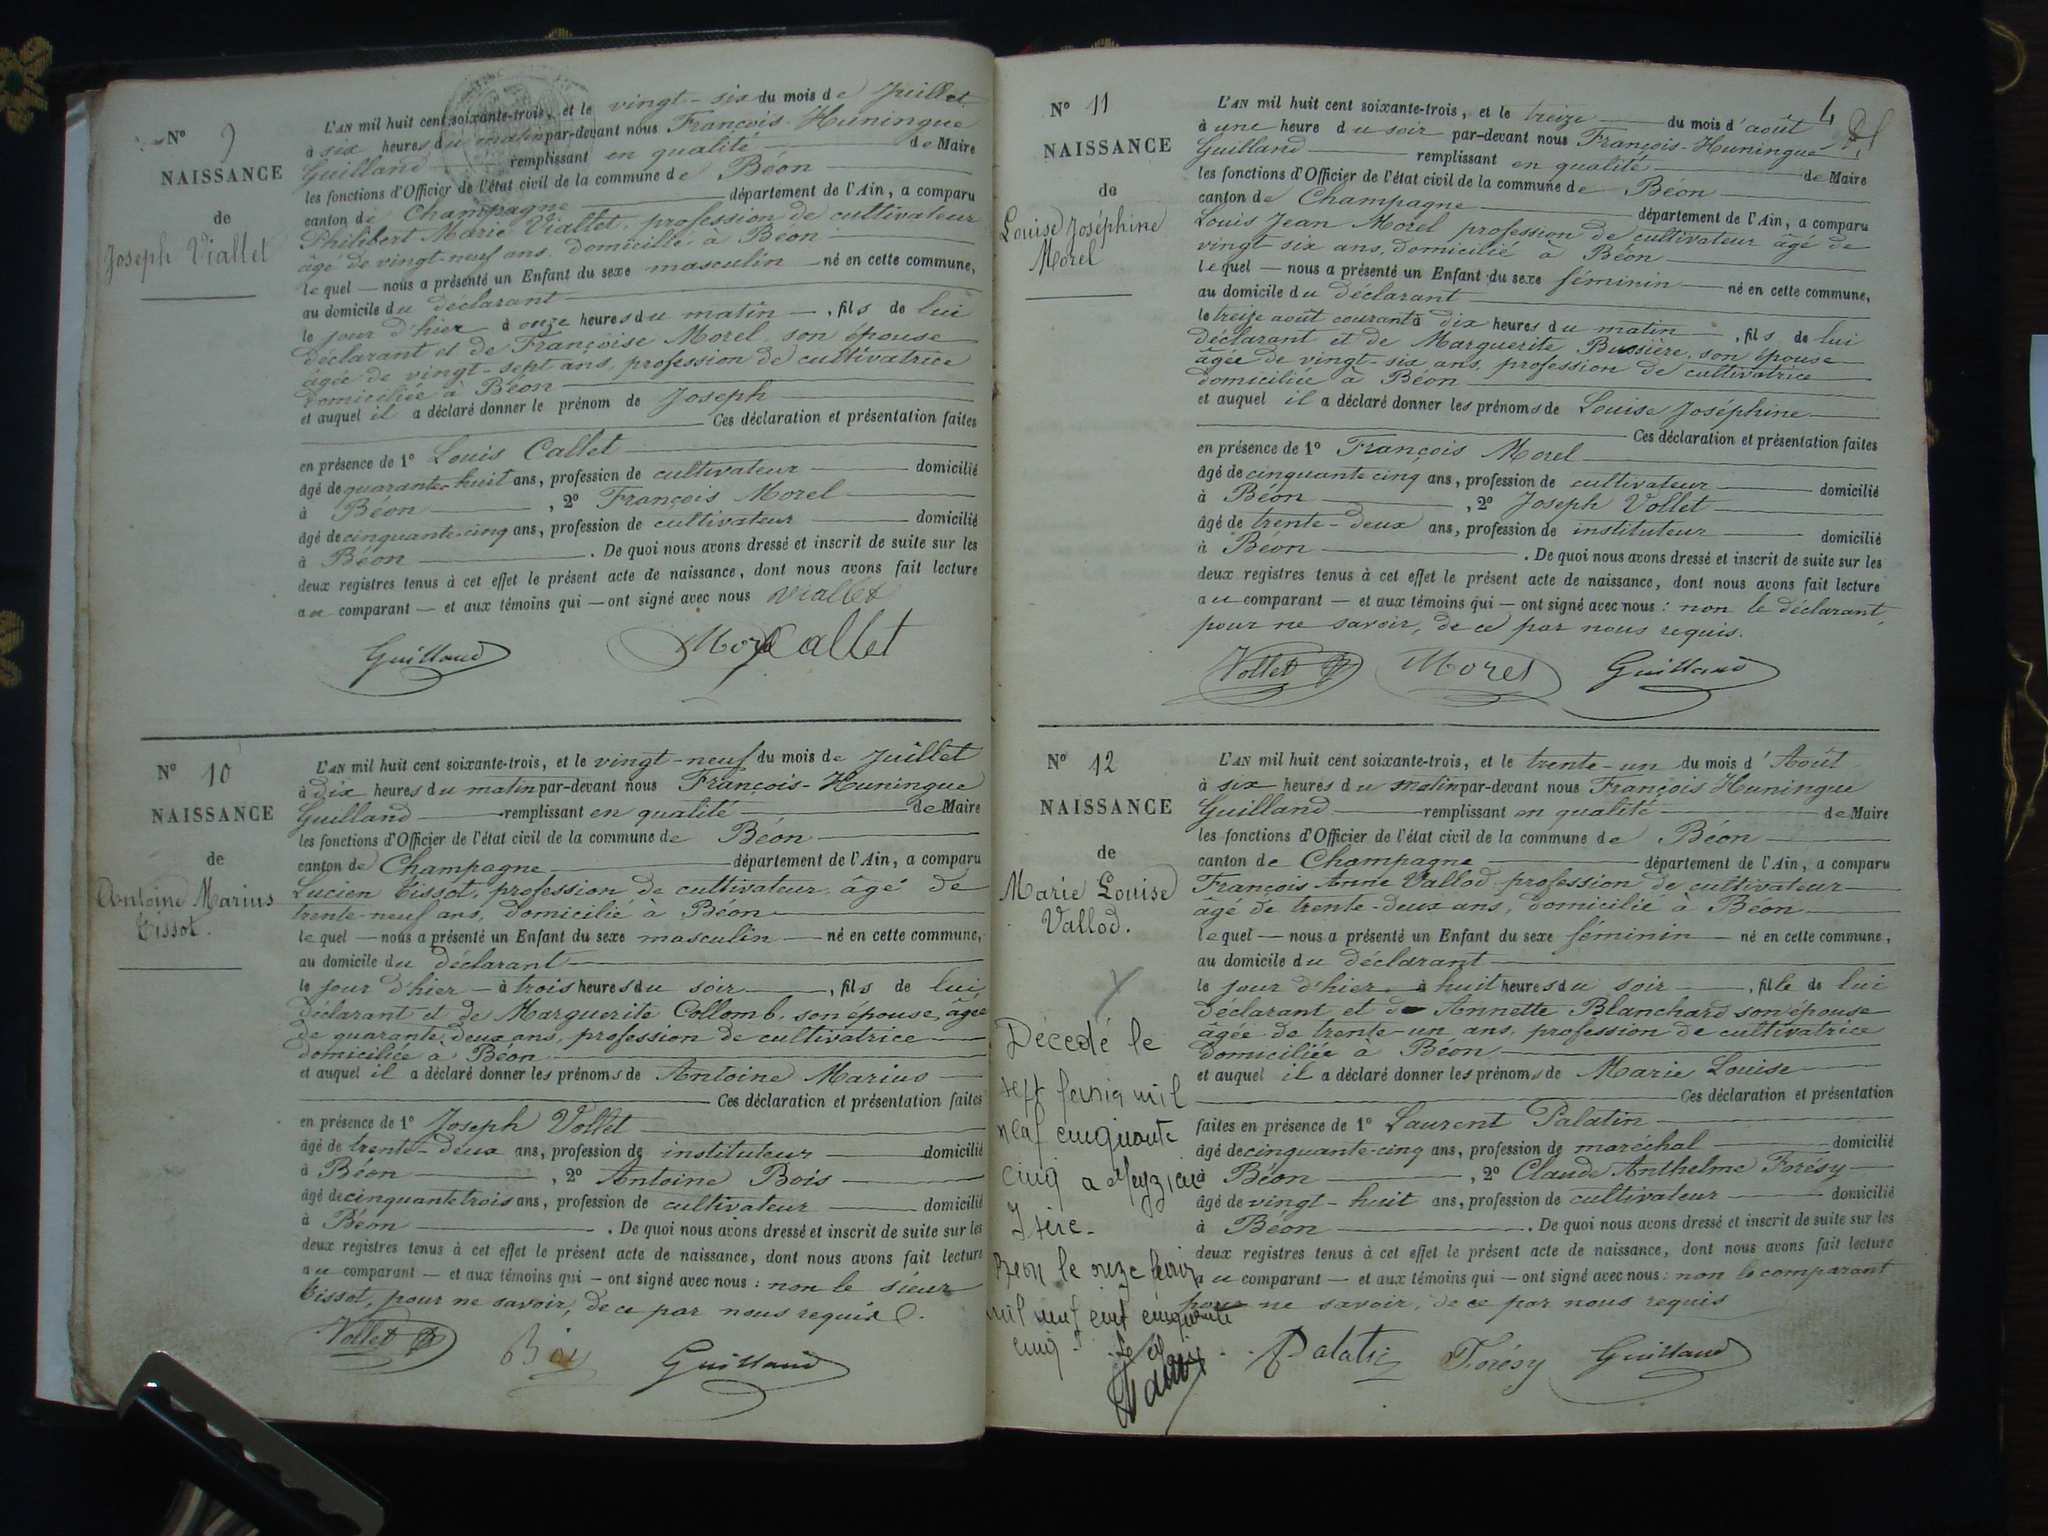 N° 9
NAISSANCE
de
Joseph Viallet
L'AN mil huit cent soixante-trois, et le vingt-six du mois de Juillet
à six heures du matin par-devant nous François-Huningue
Guilland remplissant en qualité de Maire
les fonctions d'Officier de l'état civil de la commune de Béon
canton de Champagne département de l'Ain, a comparu
Philibert Marie Viallet, profession de cultivateur
âgé de vingt-neuf ans, domicilié à Béon
lequel — nous a présenté un Enfant du sexe masculin né en cette commune,
au domicile du déclarant
le jour d'hier à onze heures du matin, fils de lui
déclarant et de Françoise Morel son épouse
âgée de vingt-sept ans, profession de cultivatrice
domiciliée à Béon
et auquel il a déclaré donner le prénom de Joseph
Ces déclaration et présentation faites
en présence de 1° Louis Callet
âgé de quarante-huit ans, profession de cultivateur domicilié
à Béon, 2° François Morel
âgé de cinquante-cinq ans, profession de cultivateur domicilié
à Béon. De quoi nous avons dressé et inscrit de suite sur les
deux registres tenus à cet effet le présent acte de naissance, dont nous avons fait lecture
au comparant — et aux témoins qui — ont signé avec nous Viallet
Guilland Morel Callet
N° 10
NAISSANCE
de
Antoine Marius
Tissot.
L'AN mil huit cent soixante-trois, et le vingt-neuf du mois de Juillet
à dix heures du matin par-devant nous François-Huningue
Guilland remplissant en qualité de Maire
les fonctions d'Officier de l'état civil de la commune de Béon
canton de Champagne département de l'Ain, a comparu
Lucien Tissot, profession de cultivateur âgé de
trente-neuf ans, domicilié à Béon
lequel — nous a présenté un Enfant du sexe masculin né en cette commune,
au domicile du déclarant
le jour d'hier — à trois heures du soir, fils de lui
déclarant et de Marguerite Collomb, son épouse, âgée
de quarante deux ans, profession de cultivatrice
domiciliée à Béon
et auquel il a déclaré donner les prénoms de Antoine Marius
Ces déclaration et présentation faites
en présence de 1° Joseph Vollet
âgé de trente-deux ans, profession de instituteur domicilié
à Béon, 2° Antoine Bois
âgé de cinquante trois ans, profession de cultivateur domicilié
à Béon. De quoi nous avons dressé et inscrit de suite sur les
deux registres tenus à cet effet le présent acte de naissance, dont nous avons fait lecture
au comparant — et aux témoins qui — ont signé avec nous : non le sieur
Tissot, pour ne savoir, de ce par nous requis.
Vollet Bois Guilland
4
N° 11
NAISSANCE
de
Louise Joséphine
Morel
L'AN mil huit cent soixante-trois, et le treize du mois d'août
à une heure du soir par-devant nous François-Huningue
Guilland remplissant en qualité de Maire
les fonctions d'Officier de l'état civil de la commune de Béon
canton de Champagne département de l'Ain, a comparu
Louis Jean Morel profession de cultivateur âgé de
vingt-six ans, domicilié à Béon
lequel — nous a présenté un Enfant du sexe féminin né en cette commune,
au domicile du déclarant
le treize août courant à dix heures du matin, fils de lui
déclarant et de Marguerite Bussière, son épouse
âgée de vingt-six ans, profession de cultivatrice
domiciliée à Béon
et auquel il a déclaré donner les prénoms de Louise Joséphine
Ces déclaration et présentation faites
en présence de 1° François Morel
âgé de cinquante cinq ans, profession de cultivateur domicilié
à Béon, 2° Joseph Vollet
âgé de trente-deux ans, profession de instituteur domicilié
à Béon. De quoi nous avons dressé et inscrit de suite sur les
deux registres tenus à cet effet le présent acte de naissance, dont nous avons fait lecture
au comparant — et aux témoins qui — ont signé avec nous : non le déclarant,
pour ne savoir, de ce par nous requis.
Vollet Morel Guilland
N° 12
NAISSANCE
de
Marie Louise
Vallod.
Décédé le
sept fevrier mil
neuf cinquante
cinq a Meyzieu
Isère.
Béon le onze fevrier
mil neuf cent cinquante
cinq
L'AN mil huit cent soixante-trois, et le trente-un du mois d'Août
à six heures du matin par-devant nous François Huningue
Guilland remplissant en qualité de Maire
les fonctions d'Officier de l'état civil de la commune de Béon
canton de Champagne département de l'Ain, a comparu
François Anne Vallod profession de cultivateur
âgé de trente-deux ans, domicilié à Béon
lequel — nous a présenté un Enfant du sexe féminin né en cette commune,
au domicile du déclarant
le jour d'hier à huit heures du soir, fille de lui
déclarant et de Annette Blanchard son épouse
âgée de trente-un ans, profession de cultivatrice
domiciliée à Béon
et auquel il a déclaré donner les prénoms de Marie Louise
Ces déclaration et présentation
faites en présence de 1° Laurent Palatin
âgé de cinquante-cinq ans, profession de maréchal domicilié
à Béon, 2° Claude Anthelme Forésy
âgé de vingt-huit ans, profession de cultivateur domicilié
à Béon. De quoi nous avons dressé et inscrit de suite sur les
deux registres tenus à cet effet le présent acte de naissance, dont nous avons fait lecture
au comparant — et aux témoins qui — ont signé avec nous : non le comparant
pour ne savoir, de ce par nous requis
Palatin Forésy Guilland